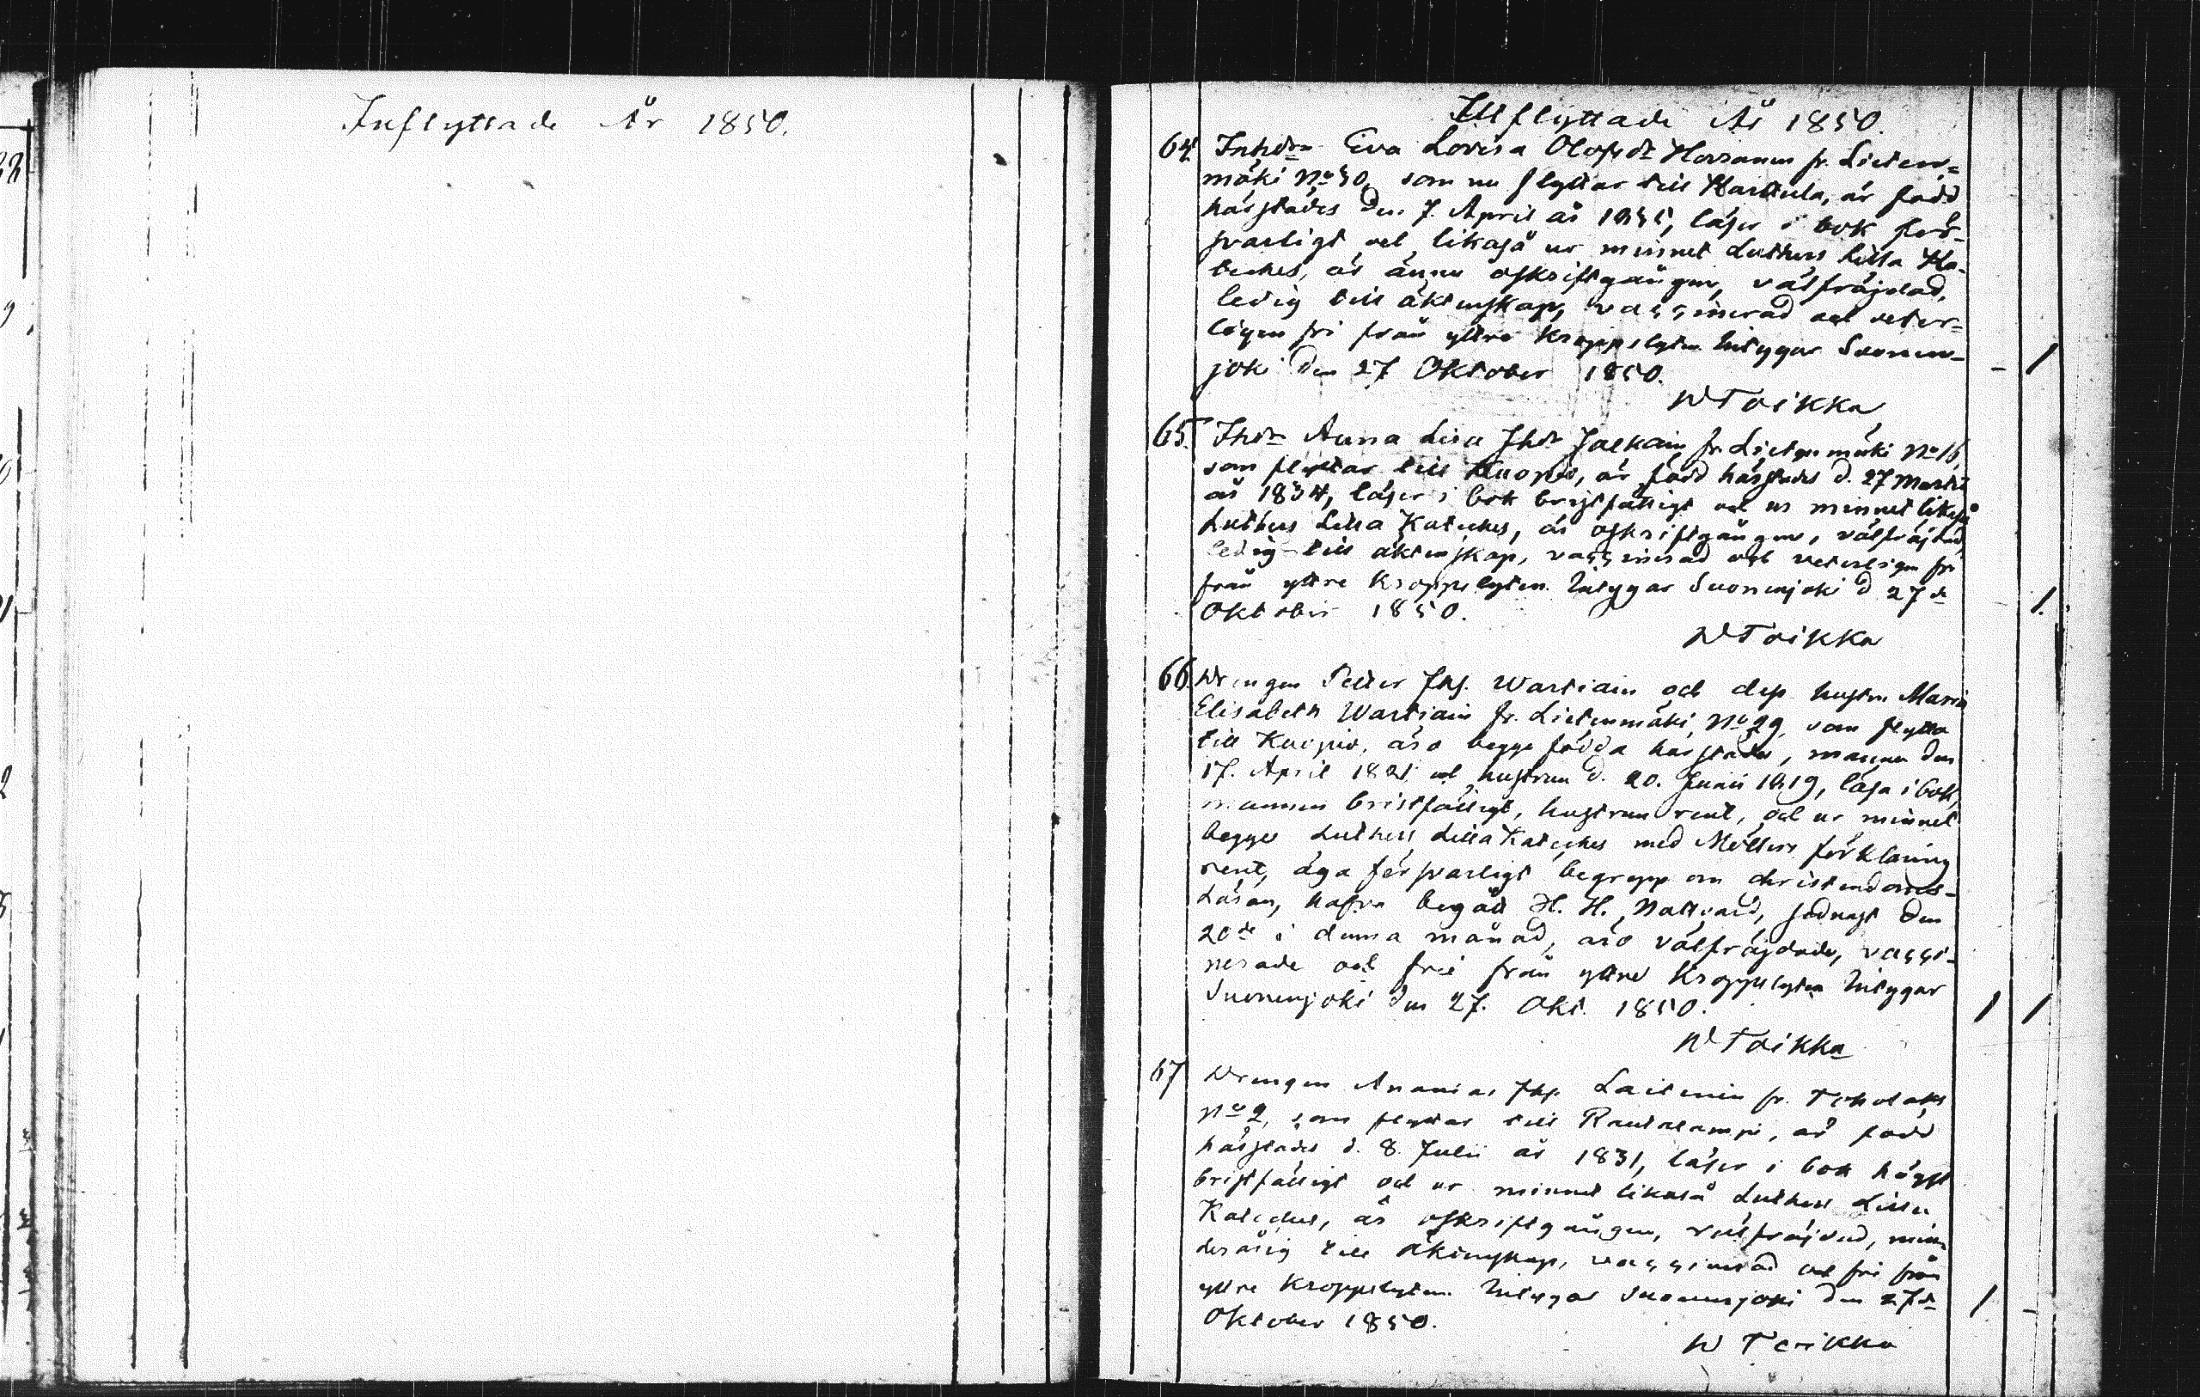 Inflyttade År 1850.
Utflyttade År 1850.
64. Inhdn Eva Lovisa Olofsdr fr. Lieten=
mäki No 30, som nu flyttar till Karttula, är född
härstädes den 7. April år 1835, läser i bok för-
svarligt och likaså ur minnet Luthers Lilla Ka-
teches, är ännu oskriftgången, välfräjdad,
ledig till äktenskap, vaccinerad och veter-
ligen fri från yttre kroppslyten. Intygar Suonen-
joki den 27 Oktober 1850. - 1
W Toikka
65. Ihdr Anna Lisa Jhdr Jalkain fr. Lietenmäki No 16,
som flyttar till Kuopio, är född härstädes d. 27 Martii
år 1834, läser i bok bristfälligt och ur minnet likaså
Luthers Lilla Kateches, är oskriftgången, välfräjdad,
ledig till äktenskap, vaccinerad och veterligen fri
från yttre kroppslyten. Intygar Suonenjoki d 27de
Oktober 1850. 1.
W Toikka
66. Drengen Petter Jhs. Wartiain och dess hustru Maria
Elisabeth Wartiain fr. Lietenmäki No 29, som flytta
till Kuopio, äro begge födda härstädes, mannen den
17. April 1821 och hustrun d. 20. Junii 1819, läsa i bok,
mannen bristfälligt, hustrun rent, och ur minnet
begge Luthers Lilla Kateches med Möllers förklaring
rent, äga försvarligt begrepp om christendoms-
Läran, hafva begått H. H. Nattvard, sednast den
20de i denna månad, äro välfräjdade, vacci-
nerade och frie från yttre kroppslyten Intygar
Suonenjoki den 27. Okt. 1850. 1 1
W Toikka
67 Drengen Ananias Jhs. Laitinen fr.
No 2, som flyttar till Rautalampi, är född
härstädes d. 8. Julii år 1831, läser i bok högst
bristfälligt och ur minnet likaså Luthers Lilla
Kateches, är oskriftgången, välfräjdad, min-
derårig till äktenskap, vaccinerad och fri från
yttre kroppslyten. Intygar Suonenjoki den 27de
Oktober 1850. 1 -
W Toikka